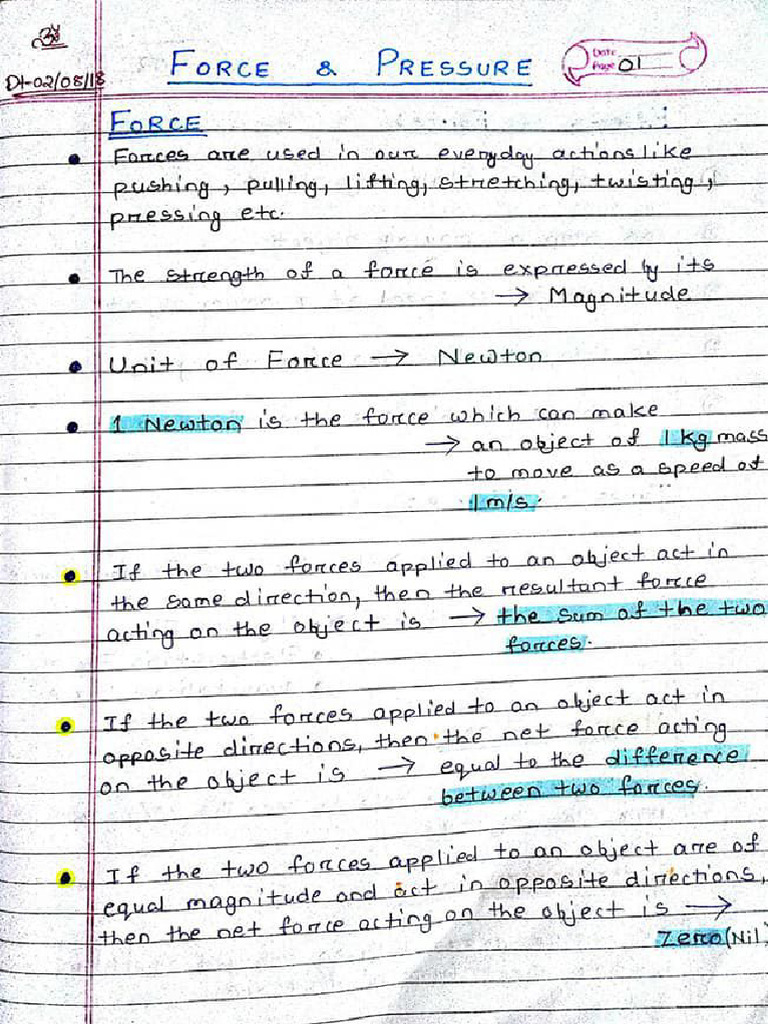 ॐ
Dt-02/08/18
FORCE & PRESSURE
Date
Page 01
FORCE
• Forces are used in our everyday actions like
pushing, pulling, lifting, stretching, twisting,
pressing etc.
• The strength of a force is expressed by its
→ Magnitude
• Unit of Force → Newton
• 1 Newton is the force which can make
→ an object of 1 kg mass
to move as a speed of
1m/s.
• If the two forces applied to an object act in
the same direction, then the resultant force
acting on the object is → the sum of the two
forces.
• If the two forces applied to an object act in
opposite directions, then the net force acting
on the object is → equal to the difference
between two forces.
• If the two forces applied to an object are of
equal magnitude and act in opposite directions,
then the net force acting on the object is →
Zero (Nil)